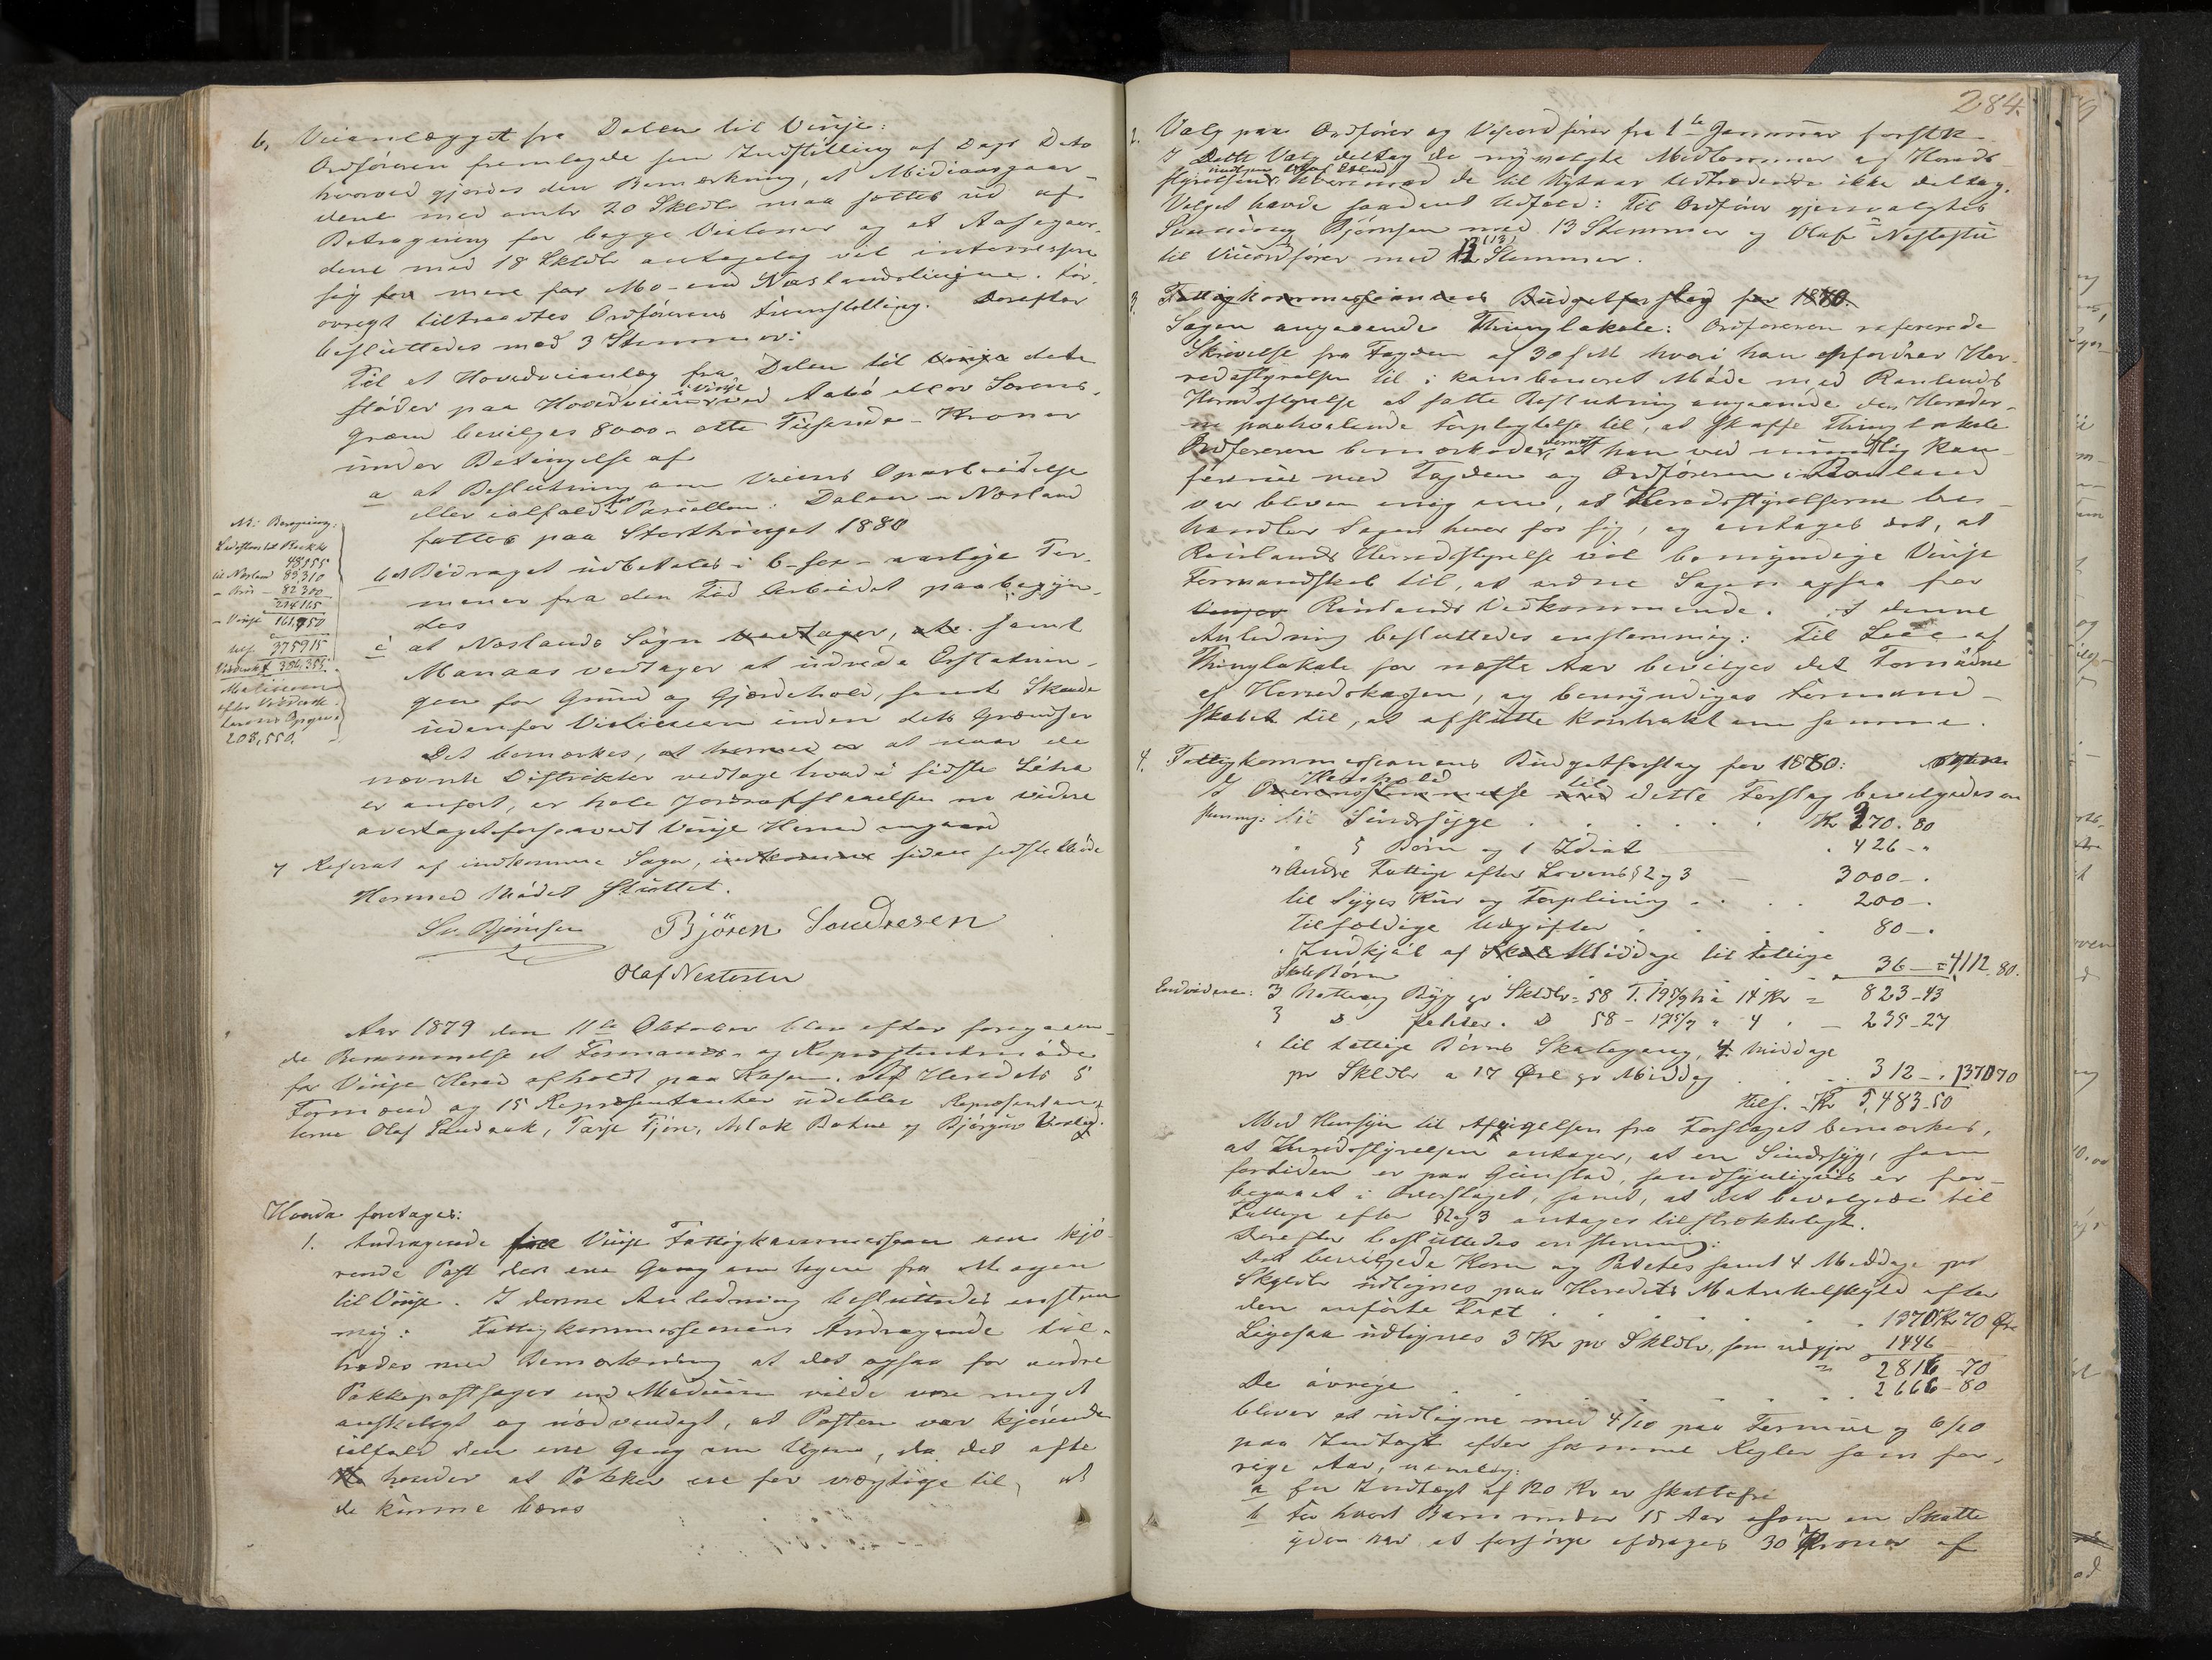 6, Veianlægget fra Dalen til Vinje:
Ordføreren fremlagde sin Indstilling af Dags Dato
hvorved gjordes den Bemærkning, at Midiaasgaar-
dene med omtr 20 Skldlr maa sættes ud af
Betragning for begge Veilinier og at Aasegaar-
dene med 18 Skldlr antagelig vil interressere
sig mere for Mo- end Næslandslinjene. For-
øvrigt tiltraadtes Ordførerens Fremstilling. Derefter
besluttedes med 3 Stemmer:
Til et Hovedveianlæg fra Dalen til Vinje dets
støder paa Hovedveien i Vinje ved Aabø eller Sørens-
græn bevilges 8000 - otte Tusende - Kroner
under Betingelse af
a at Beslutning om Veiens Oparbeidelse
eller ialfald for Parcellen: Dalen - Næsland
fattes paa Storthinget 1880
b at Bidraget udbetales i 6 - sex - aarlige Ter-
miner fra den Tid Arbeidet paabegyn-
des
c at Næslands Sogn vedtager, etc. samt
Manaas vedtager at udrede Erstatnin-
gen for Grund og Gjærdehold, samt Skade
udenfor Veilinien inden dets Grændser
Det bemærkes, at hermed er at naar de
nævnte Distrikter vedtage hvad i sidste Litra
er anført, er hele Jordafstaaelsen m videre
overtaget forsaavidt Vinje Herred angaard
7 Referat af indkomne Sager, indkomne siden sidste Møde
Hermed Mødet sluttet.
Sv. Bjørnsen Björen Sondresen
Olaf Nestestu
NB: Beregning:
48,155
til Næsland 83,310
- Brii - 82 300
214165
- Vinje 161,750
tils. 375915
208,550.
Aar 1879 den 11te Oktober blev efter foregaaen-
de Berammelse et Formands- og Repræsentantmøde
for Vinje Herred afholdt paa Kosen. Af Herredets 5
Formænd og 15 Repræsentanter udeblev Repræsentan-
terne Olaf Sandnuk, Tarje Fjøn, Aslak Bøtne og Bjørgūv Vaalig.
Hvorda foretages:
1. Andragende fra Vinje Fattigkommission om kjø-
rende Post den ene Gang om Ugen fra Mogen
til Vinje. I denne Anledning besluttedes enstem-
mig: Fattigkommissionens Andragende til-
trædes med Bemærkning at det ogsaa for andre
Pakkepostsager end Medicin vilde være meget
ønskeligt og nødvendigt, at Posten var kjørende
ialfald den ene Gang om Ugen, da det ofte
hender at Pakker ere for vægtige til, at
de kunne bæres
284.
2. Valg paa Ordfører og Viceordfører fra 1ste Januar førstk.
I Dette Valg deltog de nyvalgte Medlemmer af Herreds-
styrelsen, hvorimod de til Nytaar Udtrædende ikke deltog.
Valget havde saadant Udfald: Til Ordfører gjenvalgtes
Svenung Bjørnsen med 13 Stemmer og Olaf Nestestu
til Viceordfører med 13 (13) Stemmer.
3. Fattigkommissionens Budgetforslag for 1880.
Sagen angaaende Thinglokale: Ordføreren refererede
Skrivelse fra Fogden af 30 f M hvori han opfordrer Her-
redsstyrelsen til i kombineret Møde med Raulands
Herredsstyrelse at fatte Beslutning angaaende den Herreder-
ne paahvilende Forpligtelse til, at skaffe Thinglokale
Ordføreren bemærkede, at han ved mundtlig Kon-
ferents med Fogden og Ordføreren i Rauland
var bleven enig om, at Herredsstyrelserne be-
handler Sagen hver for sig, og antages det, at
Raulands Herredsstyrelse vil bemyndige Vinje
Formandskab til, at ordne Sagen ogsaa for
Vinjes Raulands Vedkommende. I denne
Anledning besluttedes enstemmig: Til Leie af
Thinglokale for næste Aar bevilges det Fornødne
af Herredskassen, og bemyndiges Formand-
skabet til, at afslutte Kontrakt om samme.
4. Fattigkommissionens Budgetforslag for 1880:
I Overensstemmelse med Henhold til dette Forslag bevilgedes en
stemmig: til Sindssyge . . . . . Kr 270. 80
" 5 Børn og 1 Idiot " 426 - "
" Andre Fattige efter Lovens § 2 og 3 - 3000 - .
til Syges Kur og Forpleining . . . 200 - .
Tilfældige Udgifter . . . 80 - .
. Indkjøb af Skol Middage til fattige
Skolebørn 36 - = 4112. 80.
Endvidere: 3 Potter Byg pr Skldlr = 58 T. à 14 Kr = 823 - 43
3 D Poteter. D 58 - " 4 . - 235 - 27
" til fattige Børns Skolegang, 4 Middage
pr Skldlr a 17 Øre pr Middag . . . 312 - . 1370 70
tils. Kr 5,483 - 50
Med Hensyn til Afvigelsen fra Forslaget bemærkes,
at Herredsstyrelsen antager, at en Sindssyg, som
fortiden er paa Gaustad, sandsynligvis er for-
begaaet i Overslaget, samt, at det bevilgede til
Fattige efter § 2 og 3 antages tilstrækkeligt.
Derefter besluttedes enstemmig:
Det bevilgede Korn og Potetes samt 4 Middage pr
Skylddlr udlignes paa Herredets Matrikelskyld efter
den anførte Taxt . . . . 1370 Kr 70 Øre
Ligesaa udlignes 3 Kr pr Skldlr, som udgjør 1446
2816 - 70
De øvrige . . . . . 2666 - 80
bliver at udligne med 4/10 paa Formue og 6/10
paa Indtægt efter samme Regler som for-
rige Aar, nemlig:
a En Indtægt af 120 Kr er skattefri
b For hvert Barn under 15 Aar som en Skatte
yder har at forsørge afdrages 30 Kroner af